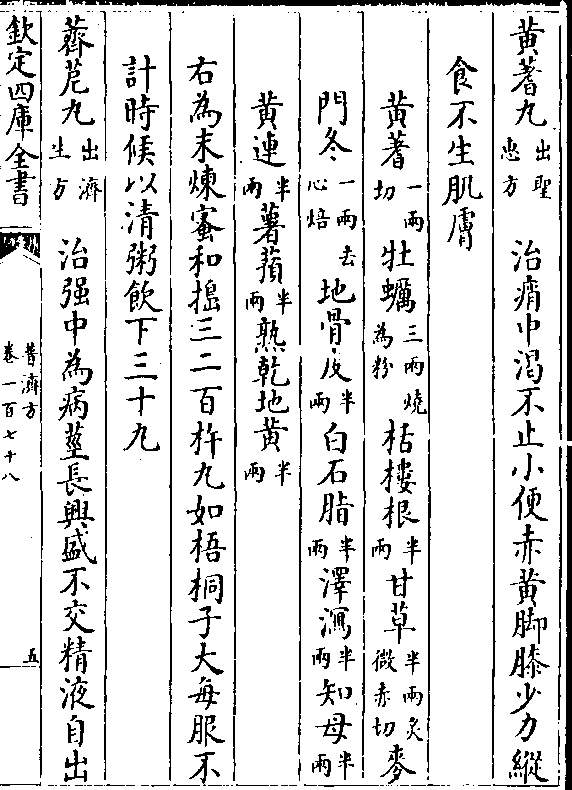 黄蓍丸出聖惠方　治痟中渴不止小便赤黄脚膝少力縱
食不生肌膚
黄蓍一兩切　牡蠣三兩燒為粉　栝樓根半兩　甘草半兩炙微赤切　麥
門冬一兩去心焙　地骨皮半兩　白石脂半兩　澤瀉半兩　知母半兩
黄連半兩　薯蕷半兩　熟乾地黄半兩
右為末煉蜜和搗三二百杵丸如梧桐子大每服不
計時候以清粥飲下三十丸
薺苨丸出濟生方　治强中為病莖長興盛不交精液自出
欽定四庫全書
普濟方
卷一百七十八
五